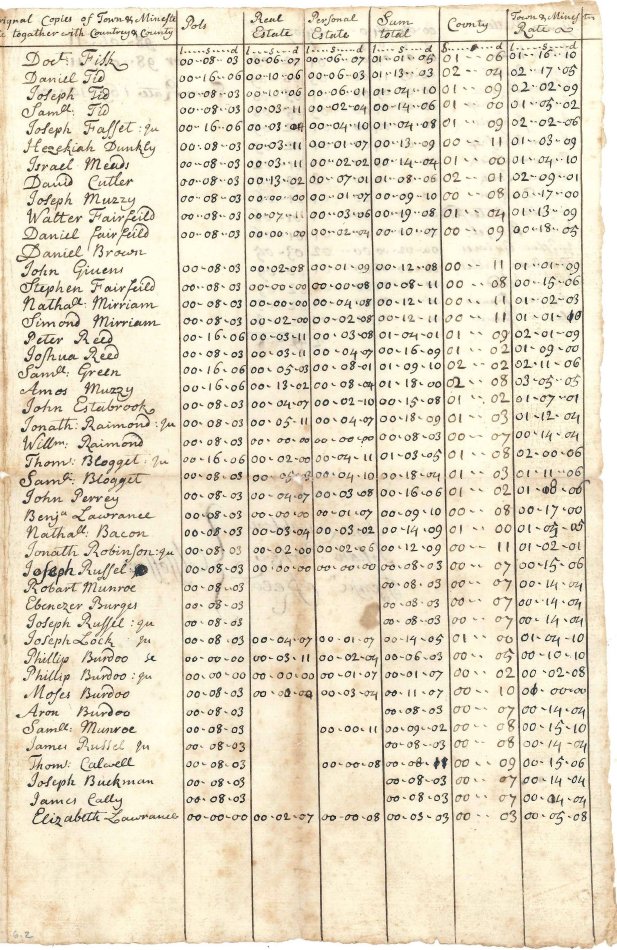 Original Copies of Town & Ministe Pols Real Estate Personal Estate Sum total County Town & Ministers Rate
together with Countrey & County
l..s..d l..s..d l..s..d l..s..d s d l..s..d
Doct: Fisk 00-08-03 00-06-07 00-06-07 01-01-05 01--06 01-16-10
Daniel Tid 00-16-06 00-10-06 00-06-03 01-13-03 02--04 02-17-05
Joseph Tid 00-08-03 00-10-06 00-06-01 01-04-10 01--09 02-02-09
Samll: Tid 00-08-03 00-03-11 00-02-04 00-14-06 01--00 01-05-02
Joseph Fasset: Ju 00-16-06 00-03-04 00-04-10 01-04-08 01--09 02-02-06
Hezekiah Dunkly 00-08-03 00-03-11 00-01-07 00-13-09 00--11 01-03-09
Israel Meads 00-08-03 00-03-11 00-02-02 00-14-04 01--00 01-04-10
David Cutler 00-08-03 00-13-02 00-07-01 01-08-06 02--01 02-09-01
Joseph Muzzy 00-08-03 00-00-00 00-01-07 00-09-10 00--08 00-17-00
Walter Fairfeild 00-08-03 00-07-11 00-03-06 00-19-08 01--04 01-13-09
Daniel fairfeild 00-08-03 00-00-00 00-02-04 00-10-07 00--09 00-18-05
Daniel Brown
John Giuens 00-08-03 00-02-08 00-01-09 00-12-08 00--11 01-01-09
Stephen Fairfeild 00-08-03 00-00-00 00-00-08 00-08-11 00--08 00-15-06
Nathall: Mirriam 00-08-03 00-00-00 00-04-08 00-12-11 00--11 01-02-03
Simond Mirriam 00-08-03 00-02-00 00-02-08 00-12-11 00--11 01-01-10
Peter Reed 00-16-06 00-03-11 00-03-08 01-04-01 01--09 02-01-09
Joshua Reed 00-08-03 00-03-11 00-04-07 00-16-09 01--02 01-09-00
Samll: Green 00-16-06 00-05-03 00-08-01 01-09-10 02--02 02-11-06
Amos Muzzy 00-16-06 00-13-02 00-08-04 01-18-00 02--08 03-05-05
John Estabrook 00-08-03 00-04-07 00-02-10 00-15-08 01--02 01-07-01
Jonath: Raimond: Ju 00-08-03 00-05-11 00-04-07 00-18-09 01--03 01-12-04
Willm: Raimond 00-08-03 00-00-00 00-00-00 00-08-03 00--07 00-14-04
Thom: Blogget: Ju 00-16-06 00-02-00 00-04-11 01-03-05 01--08 02-00-06
Samll: Blogget 00-08-03 00-05-03 00-04-10 00-18-04 01--03 01-11-06
John Perrey 00-08-03 00-04-07 00-03-08 00-16-06 01--02 01-08-06
Benja Lawrance 00-08-03 00-00-00 00-01-07 00-09-10 00--08 00-17-00
Nathall: Bacon 00-08-03 00-03-04 00-03-02 00-14-09 01--00 01-05-05
Jonath Robinson: Ju 00-08-03 00-02-00 00-02-06 00-12-09 00--11 01-02-01
Joseph Russel 00-08-03 00-00-00 00-00-00 00-08-03 00--07 00-15-06
Robart Munroe 00-08-03 00-08-03 00--07 00-14-04
Ebenezer Burges 00-08-03 00-08-03 00--07 00-14-04
Joseph Russel: Ju 00-08-03 00-08-03 00--07 00-14-04
Joseph Lock Ju 00-08-03 00-04-07 00-01-07 00-14-05 01--00 01-04-10
Phillip Burdoo se 00-00-00 00-03-11 00-02-04 00-06-03 00--05 00-10-10
Phillip Burdoo: Ju 00-00-00 00-00-00 00-01-07 00-01-07 00--02 00-02-08
Moses Burdoo 00-08-03 00-00-00 00-03-04 00-11-07 00--10 01-00-00
Aron Burdoo 00-08-03 00-08-03 00--07 00-14-04
Samll: Munroe 00-08-03 00-00-11 00-09-02 00--08 00-15-10
James Russel Ju 00-08-03 00-08-03 00--08 00-14-04
Thom: Calwell 00-08-03 00-00-08 00-08-11 00--09 00-15-06
Joseph Buckman 00-08-03 00-08-03 00--07 00-14-04
James Cally 00-08-03 00-08-03 00--07 00-14-04
Elizabeth Lawrance 00-00-00 00-02-07 00-00-08 00-03-03 00--03 00-05-08
6.2